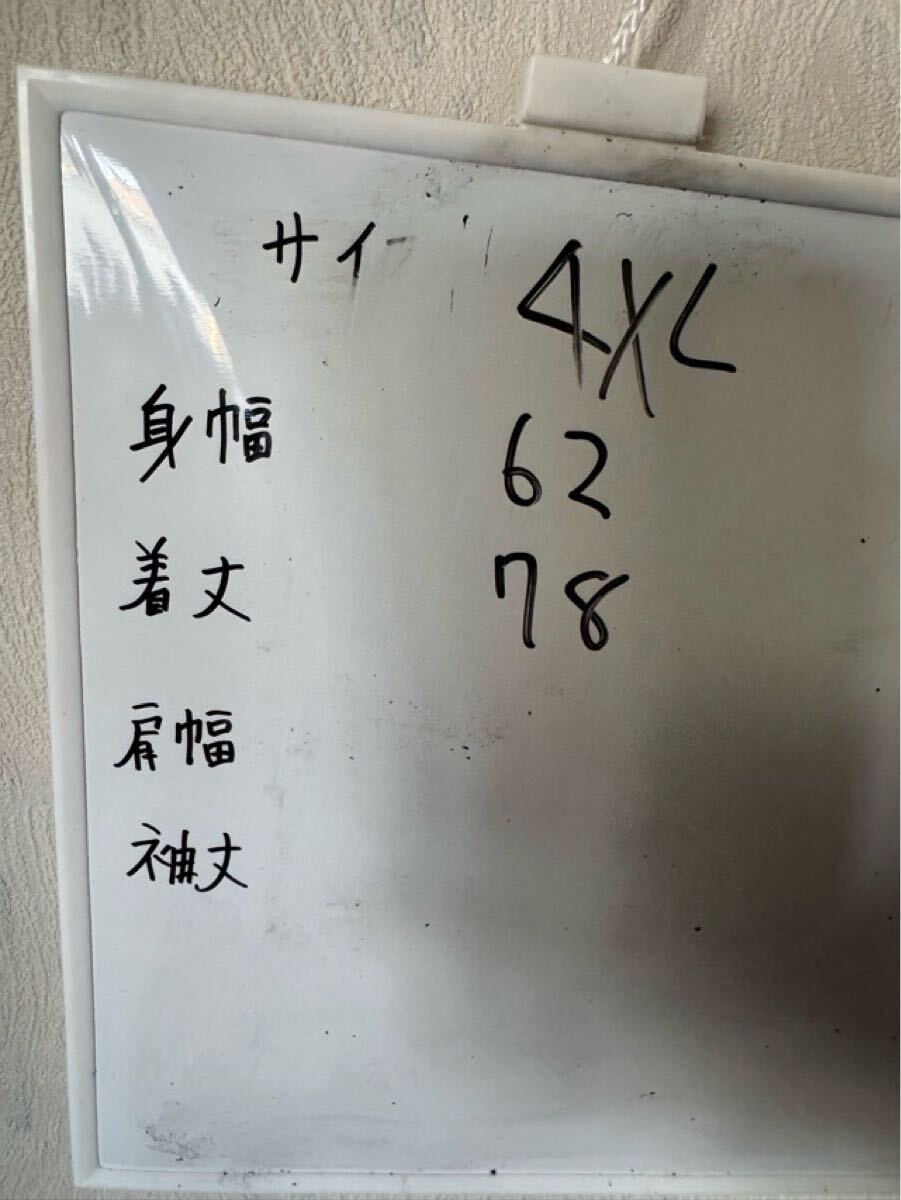 サイ 4XL
身幅 62
着丈 78
肩幅
袖丈